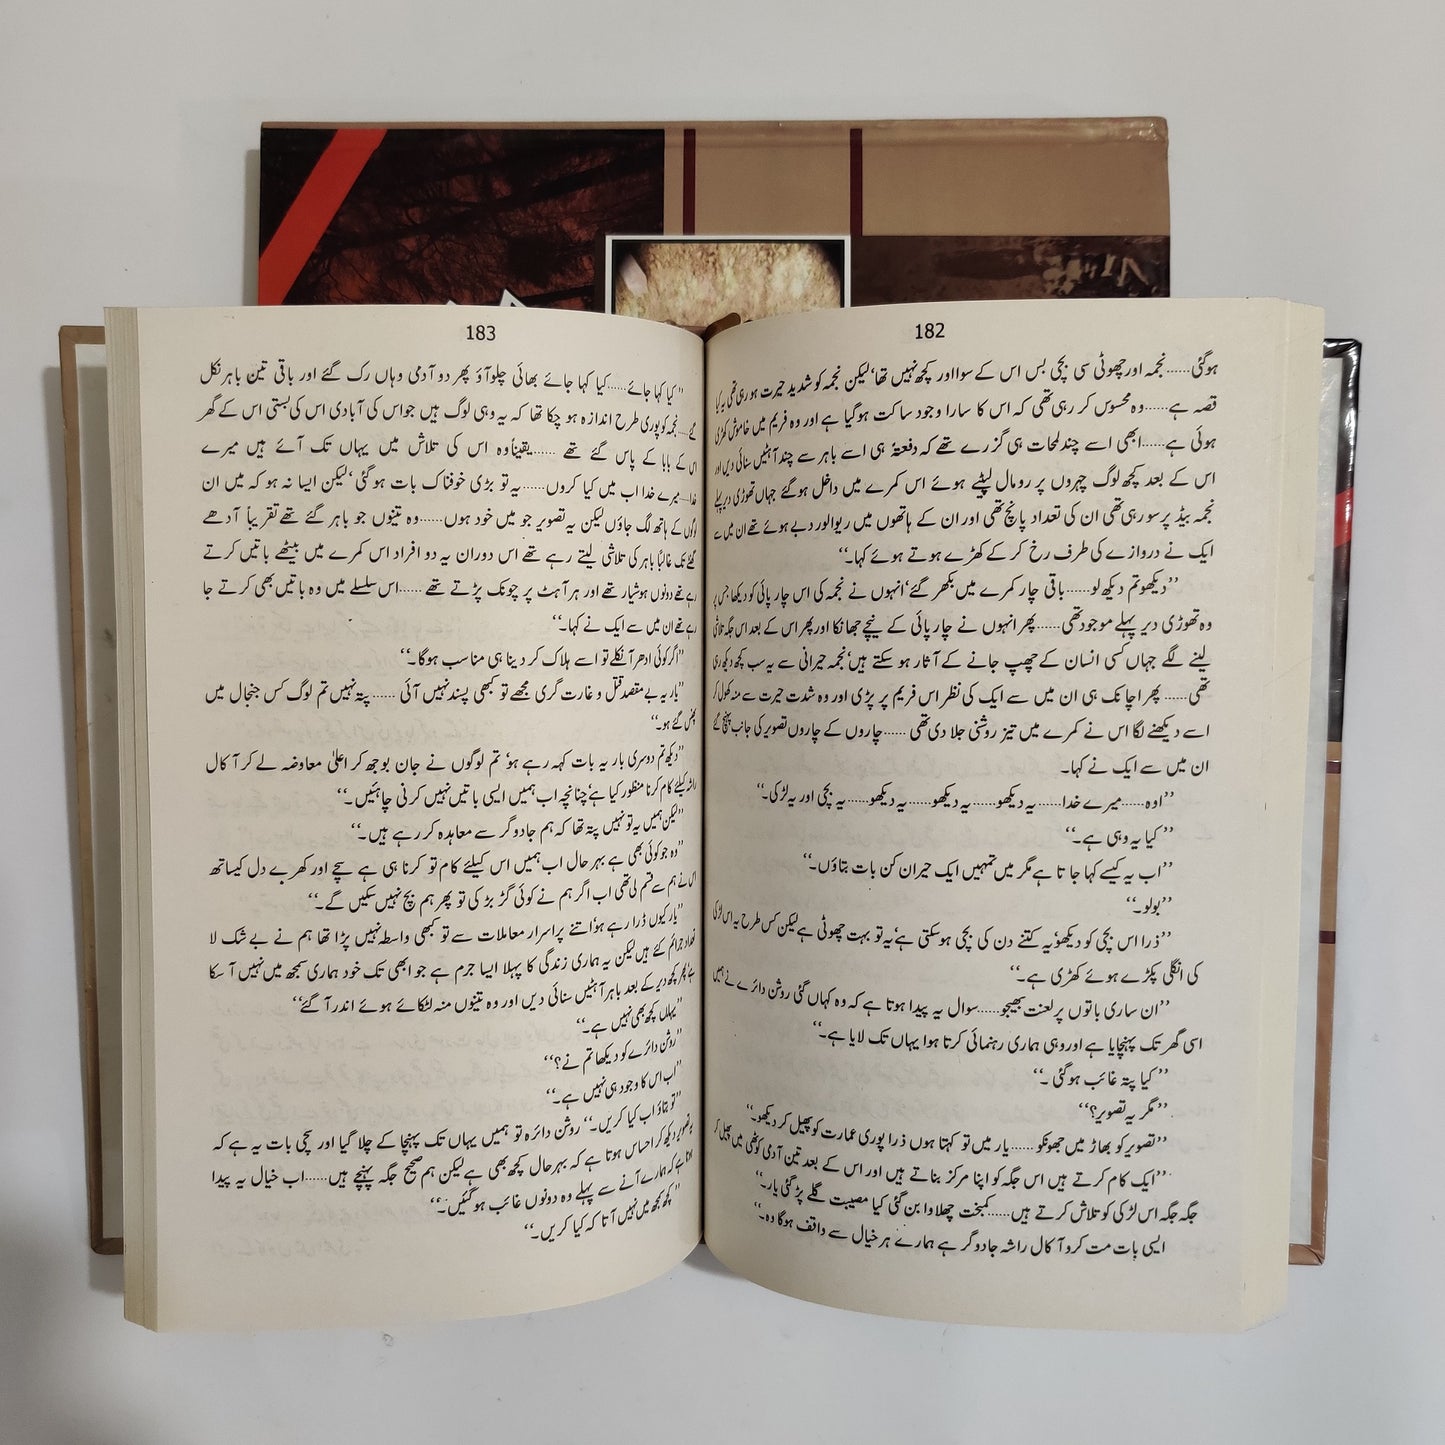 182
ہوگئی......نجمہ اور چھوٹی سی بچی بس اس کے سوا اور کچھ نہیں تھا‘ لیکن نجمہ کو شدید حیرت ہو رہی تھی یہ کیا
قصہ ہے......وہ محسوس کر رہی تھی کہ اس کا سارا وجود ساکت ہوگیا ہے اور وہ فریم میں خاموش کھڑی
ہوئی ہے......ابھی اسے چند لمحات ہی گزرے تھے کہ دفعتہً ہی اسے باہر سے چند آہٹیں سنائی دیں اور
اس کے بعد کچھ لوگ چہروں پر رومال لپیٹے ہوئے اس کمرے میں داخل ہوگئے جہاں تھوڑی دیر پہلے
نجمہ بیڈ پر سو رہی تھی ان کی تعداد پانچ تھی اور ان کے ہاتھوں میں ریوالور دبے ہوئے تھے ان میں سے
ایک نے دروازے کی طرف رخ کر کے کھڑے ہوتے ہوئے کہا۔‘‘
’’دیکھو تم دیکھ لو......باقی چار کمرے میں بکھر گئے‘ انہوں نے نجمہ کی اس چارپائی کو دیکھا جس پر
وہ تھوڑی دیر پہلے موجود تھی......پھر انہوں نے چارپائی کے نیچے جھانکا اور پھر اس کے بعد اس جگہ تلاشی
لینے لگے جہاں کسی انسان کے چھپ جانے کے آثار ہو سکتے ہیں‘ نجمہ حیرانی سے یہ سب کچھ دیکھ رہی
تھی......پھر اچانک ہی ان میں سے ایک کی نظر اس فریم پر پڑی اور وہ شدت حیرت سے منہ کھول کر
اسے دیکھنے لگا اس نے کمرے میں تیز روشنی جلا دی تھی......چاروں کے چاروں تصویر کی جانب پہنچ گئے
ان میں سے ایک نے کہا۔
’’اوہ......میرے خدا......یہ دیکھو......یہ دیکھو......یہ دیکھو......یہ بچی اور یہ لڑکی۔‘‘
’’کیا یہ وہی ہے۔‘‘
’’اب یہ کیسے کہا جاتا ہے مگر میں تمہیں ایک حیران کن بات بتاؤں۔‘‘
’’بولو۔‘‘
’’ذرا اس بچی کو دیکھو‘ یہ کتنے دن کی بچی ہوسکتی ہے‘ یہ تو بہت چھوٹی ہے لیکن کس طرح یہ اس لڑکی
کی انگلی پکڑے ہوئے کھڑی ہے۔‘‘
’’ان ساری باتوں پر لعنت بھیجو......سوال یہ پیدا ہوتا ہے کہ وہ کہاں گئی روشن دائرے نے ہمیں
اسی گھر تک پہنچایا ہے اور وہی ہماری رہنمائی کرتا ہوا یہاں تک لایا ہے۔‘‘
’’کیا پتہ غائب ہوگئی۔‘‘
’’مگر یہ تصویر؟‘‘
’’تصویر کو بھاڑ میں جھونکو......یار میں تو کہتا ہوں ذرا پوری عمارت کو پھیل کر دیکھو۔‘‘
’’ایک کام کرتے ہیں اس جگہ کو اپنا مرکز بناتے ہیں اور اس کے بعد تین آدمی کوٹھی میں پھیل کر
جگہ جگہ اس لڑکی کو تلاش کرتے ہیں......کمبخت چھلاوا بن گئی کیا مصیبت گلے پڑ گئی یار۔‘‘
ایسی بات مت کرو آکال راشہ جادوگر ہے ہمارے ہر خیال سے واقف ہوگا وہ۔‘‘
183
’’کیا کہا جائے......کیا کہا جائے بھائی چلو آؤ پھر دو آدمی وہاں رک گئے اور باقی تین باہر نکل
گئے......نجمہ کو پوری طرح اندازہ ہو چکا تھا کہ یہ وہی لوگ ہیں جو اس کی آبادی اس کی بستی اس کے گھر
اس کے بابا کے پاس گئے تھے......یقیناً وہ اس کی تلاش میں یہاں تک آئے ہیں میرے
خدا......میرے خدا اب میں کیا کروں......یہ تو بڑی خوفناک بات ہوگئی‘ لیکن ایسا نہ ہو کہ میں ان
لوگوں کے ہاتھ لگ جاؤں لیکن یہ تصویر جو میں خود ہوں......وہ تینوں جو باہر گئے تھے تقریباً آدھے
گھنٹے تک غالباً باہر کی تلاشی لیتے رہے تھے اس دوران یہ دو افراد اس کمرے میں بیٹھے باتیں کرتے
رہے تھے دونوں ہوشیار تھے اور ہر آہٹ پر چونک پڑتے تھے......اس سلسلے میں وہ باتیں بھی کرتے جا
رہے تھے ان میں سے ایک نے کہا۔‘‘
’’اگر کوئی ادھر آ نکلے تو اسے ہلاک کر دینا ہی مناسب ہوگا۔‘‘
’’یار یہ بے مقصد قتل و غارت گری مجھے تو کبھی پسند نہیں آئی......پتہ نہیں تم لوگ کس جنجال میں
پھنس گئے ہو۔‘‘
’’دیکھ تم دوسری بار یہ بات کہہ رہے ہو‘ تم لوگوں نے جان بوجھ کر اعلیٰ معاوضہ لے کر آکال
راشہ کیلئے کام کرنا منظور کیا ہے‘ چنانچہ اب ہمیں ایسی باتیں نہیں کرنی چاہئیں۔‘‘
’’لیکن ہمیں یہ تو نہیں پتہ تھا کہ ہم جادوگر سے معاہدہ کر رہے ہیں۔‘‘
’’وہ جو کوئی بھی ہے بہر حال اب ہمیں اس کیلئے کام تو کرنا ہی ہے سچے اور کھرے دل کیساتھ
اس نے ہم سے قسم لی تھی اب اگر ہم نے کوئی گڑ بڑ کی تو پھر ہم بچ نہیں سکیں گے۔‘‘
’’یار کیوں ڈرا رہے ہو‘ اتنے پراسرار معاملات سے تو کبھی واسطہ نہیں پڑا تھا ہم نے بے شک لا
تعداد جرائم کئے ہیں لیکن یہ ہماری زندگی کا پہلا ایسا جرم ہے جو ابھی تک خود ہماری سمجھ میں نہیں آ سکا
ہے‘ پھر کچھ دیر کے بعد باہر آہٹیں سنائی دیں اور وہ تینوں منہ لٹکائے ہوئے اندر آ گئے‘‘
’’یہاں کچھ بھی نہیں ہے۔‘‘
’’روشن دائرے کو دیکھا تم نے؟‘‘
’’اب اس کا وجود ہی نہیں ہے۔‘‘
’’تو بتاؤ اب کیا کریں۔‘‘ روشن دائرہ تو ہمیں یہاں تک پہنچا کے چلا گیا اور سچی بات یہ ہے کہ
تصویر دیکھ کر احساس ہوتا ہے کہ بہرحال کچھ بھی ہے لیکن ہم صحیح جگہ پہنچے ہیں......اب خیال یہ پیدا
ہوتا ہے کہ ہمارے آنے سے پہلے وہ دونوں غائب ہوگئیں۔‘‘
’’کچھ سمجھ میں نہیں آتا کہ کیا کریں۔‘‘